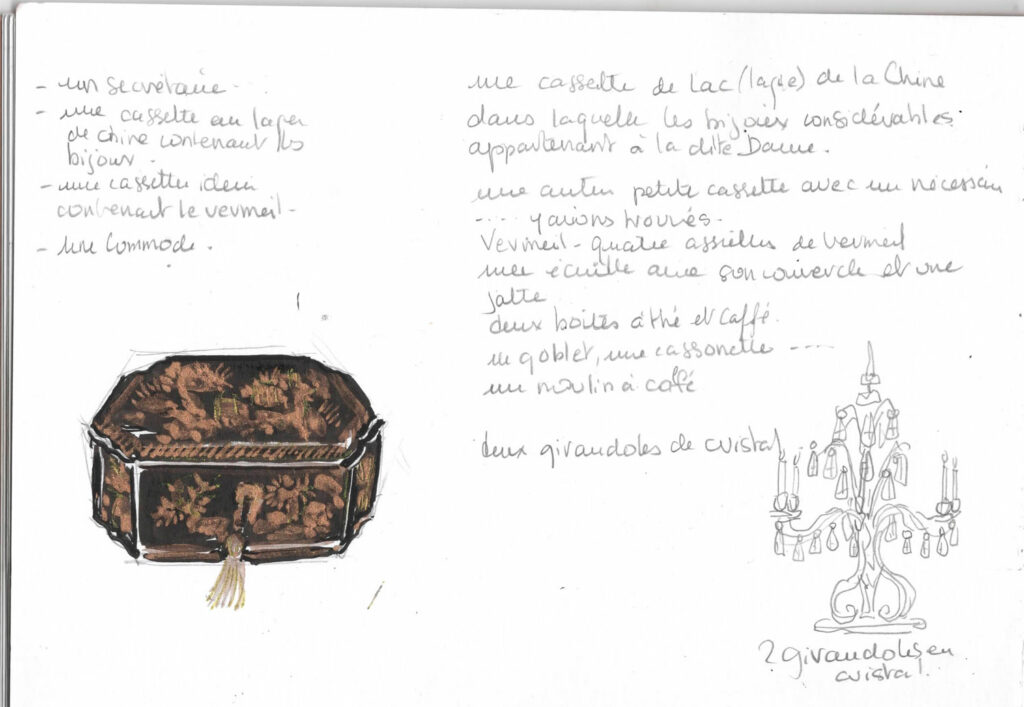 - un secrétaire -
- une cassette en laque
de chine contenant les
bijoux -
- une cassette idem
contenant le vermeil -
- une commode.
une cassette de Lac (laque) de la Chine
dans laquelle les bijoux considérables
appartenant à la dite Dame.
une autre petite cassette avec un nécessaire
.... y avons trouvés.
Vermeil - quatre assiettes de vermeil
une écuelle avec son couvercle et une
jatte
deux boîtes à thé et caffé.
un goblet, une cassonette ----
un moulin à caffé
deux girandoles de cristal ....
2 girandoles en
cristal.